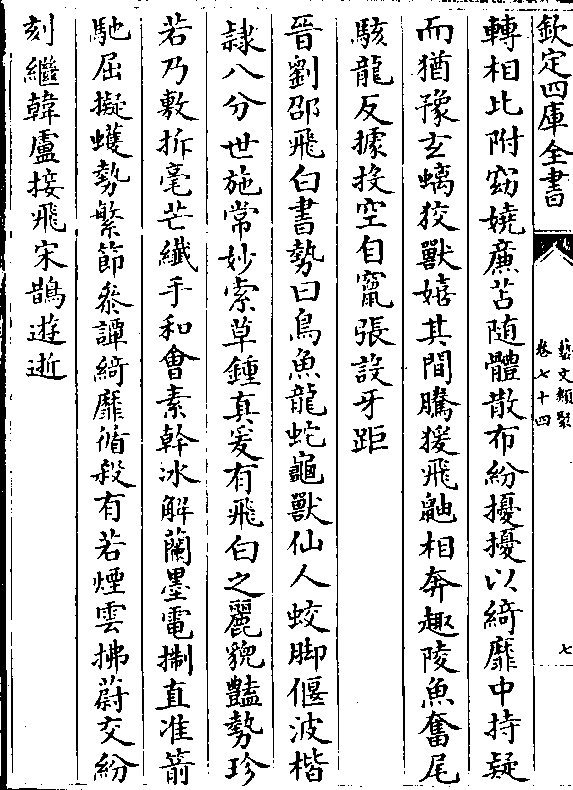 欽定四庫全書
藝文類聚
卷七十四
七
轉相比附窈嬈亷苫随體散布紛擾擾以綺靡中持疑
而猶豫玄螭狡獸嬉其間騰猨飛鼬相奔趣陵魚奮尾
駭龍反據投空自竄張設牙距
晉劉邵飛白書勢曰鳥魚龍蛇龜獸仙人蛟脚偃波楷
隷八分世施常妙索草鍾真爰有飛白之麗貌豔勢珍
若乃敷拆毫芒纖手和會素幹冰解蘭墨電掣直准箭
馳屈擬蠖勢繁節參譚綺靡循殺有若煙雲拂蔚交紛
刻繼韓盧接飛宋鵲遊逝